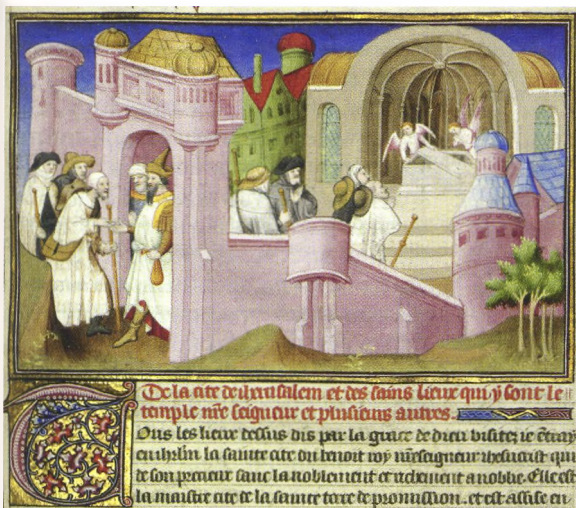 De la cite de iherusalem et des sains lieux qui y sont le
temple nre seigneur et plusieurs autres.
Tous les lieux dessus dis par la grace de dieu visitez ie entray
en ihrlm la sainte cite du benoit roy nreseigneur ihesucrist qui
de son precieux sanc la noblement et richement anoblie. Elle est
la maistre cite de la sainte terre de promission. et est assise en